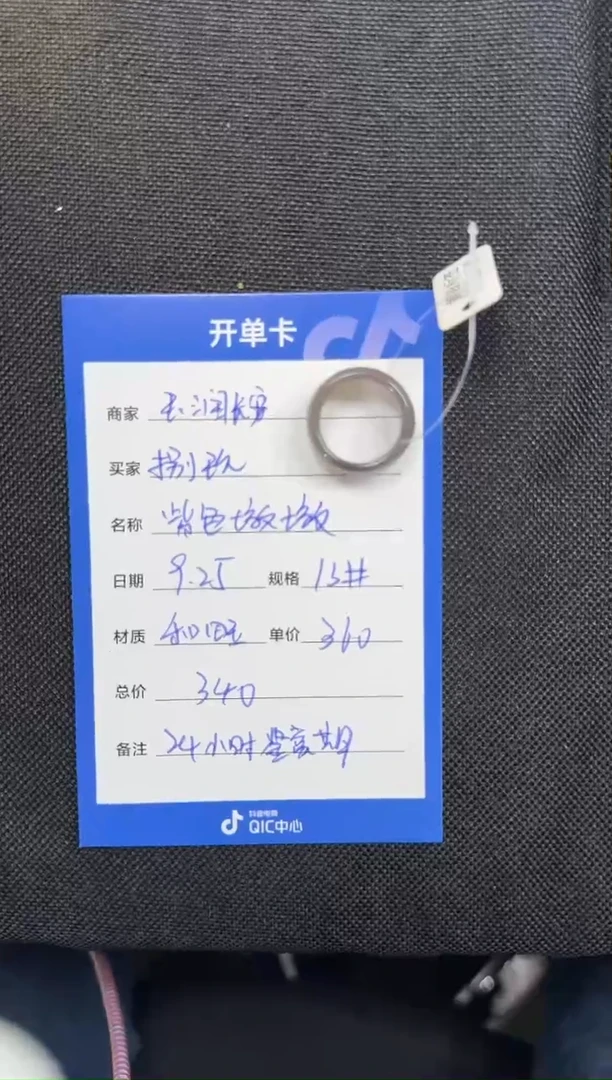 开单卡
商家 玉润长安
买家 捌玖
名称 紫色墩墩
日期 9.25 规格 13#
材质 和田玉 单价 360
总价 340
备注 24小时鉴赏期
抖音电商
QIC中心